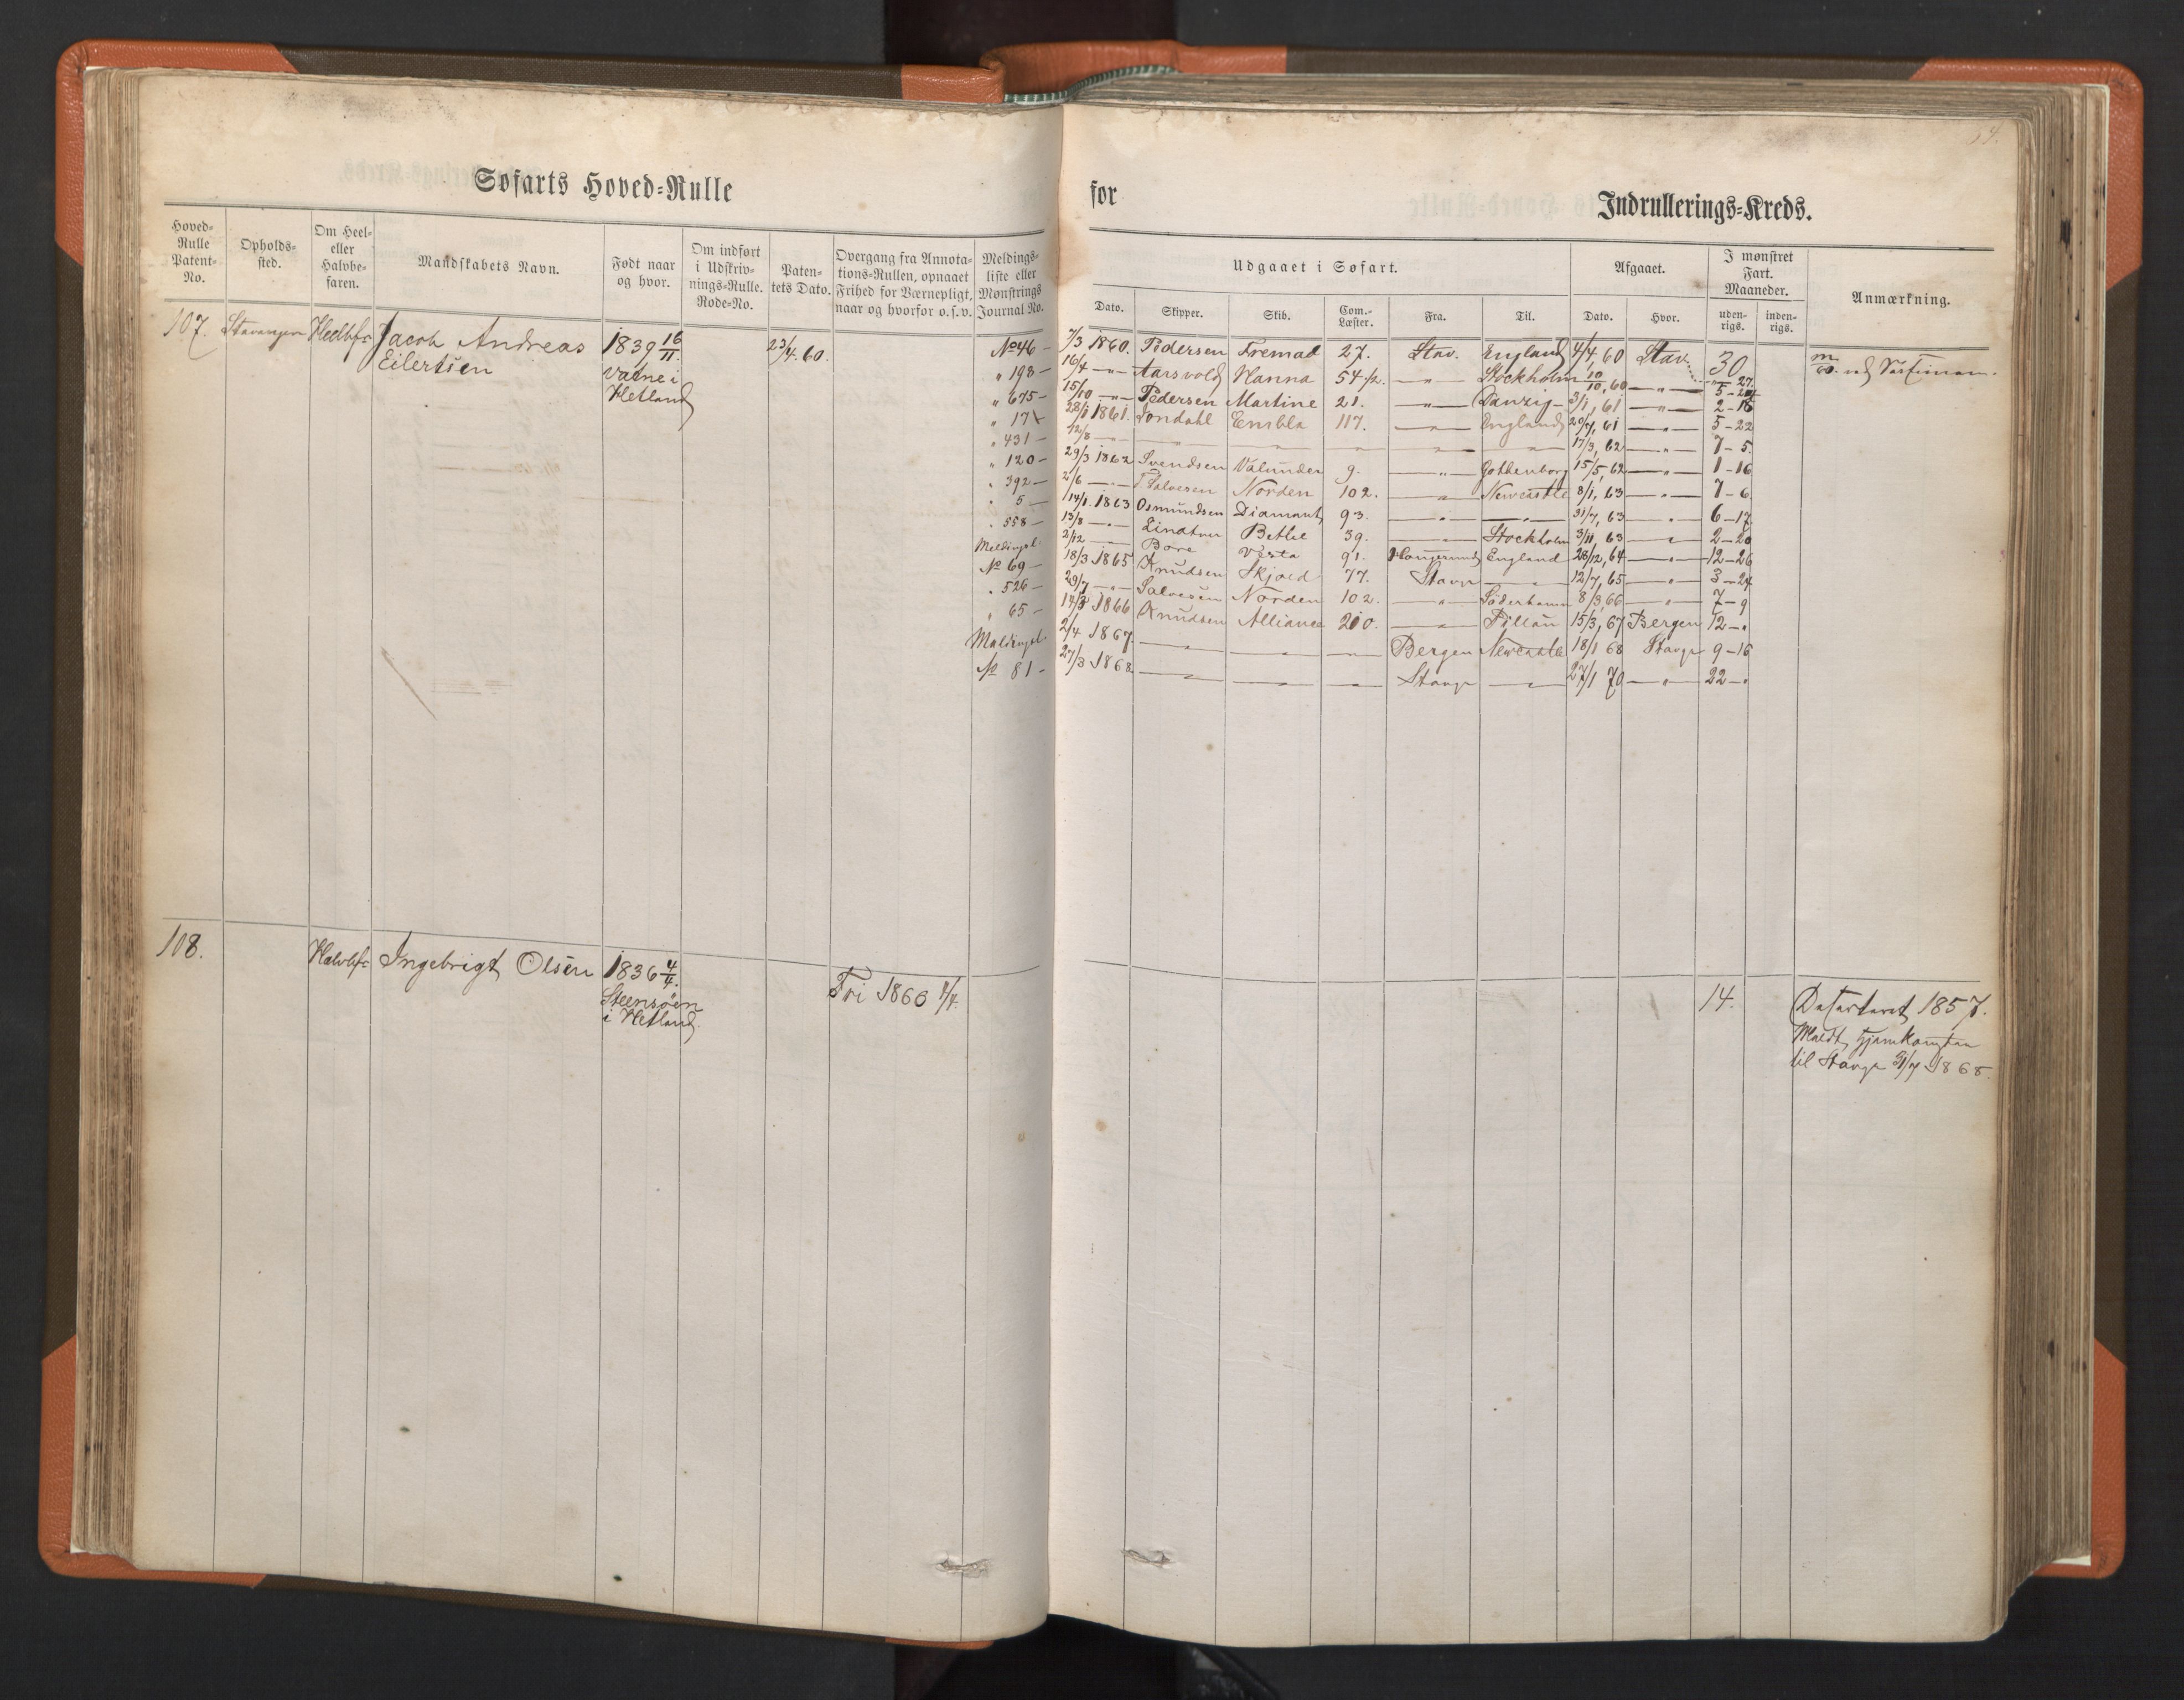 Søfarts Hoved-Rulle
Hoved-Rulle Patent-No.
Opholds-sted.
Om Heel- eller Halvbe-faren.
Mandskabets Navn.
Født naar og hvor.
Om indført i Udskriv-nings-Rulle. Rode-No.
Paten-tets Dato.
Overgang fra Annota-tions-Rullen, opnaaet Frihed for Værnepligt, naar og hvorfor o. s. v.
Meldings-liste eller Mønstrings Journal No.
107. Stavanger Heelbf. Jacob Andreas 1839 16/11. 23/4. 60. No 46 —
Eilertsen Vatne i
Hetland
" 198 —
" 675 —
" 17
" 431 —
" 120 —
" 392 —
" 5 —
" 558 —
Meldingsl.
No 69 —
" 526 —
" 65 —
Meldingsl.
No 81 —
108. Halvbf. Ingebrigt Olsen 1836 4/4. Fri 1866
Steensøen
i Hetland.
for Indrullerings-Kreds.
Udgaaet i Søfart.
Afgaaet.
I mønstret Fart. Maaneder.
Anmærkning.
Dato. Skipper. Skib. Com.-Læster. Fra. Til. Dato. Hvor. uden-rigs. inden-rigs.
7/3 1860. Pedersen Fremad 27. Stav. England 4/4, 60 Stav. 30
16/4 — " — Aarsvold Hanna 54 1/2. — " — Stockholm 10/10, 60 — " — 5 — 24
15/10 — " — Pedersen Martine 21. — " — Danzig 3/1, 61 — " — 2 — 18
28/1 1861. Jondahl Embla 117. — " — England 20/7, 61 — " — 5 — 22
12/8 — " — — " — — " — — " — — " — — " — 17/3, 62 — " — 7 — 5.
29/3 1862 Svendsen Valunder 9. — " — Gothenborg 15/5, 62 — " — 1 — 16
2/6 — " — T Salvesen Norden 102. — " — Newcastle 8/1, 63 — " — 7 — 6
14/1. 1863 Osmundsen Diamant 93. — " — — " — 31/7, 63 — " — 6 — 17
13/8 — " — Lindtner Bethe 39. — " — Stockholm 3/11, 63 — " — 2 — 20
2/12 — " — Bore Vesta 91. Haugesund England 28/12, 64 — " — 12 — 26
18/3 1865 Knudsen Skjold 77. Stavgr — " — 12/7, 65 — " — 3 — 24
29/7 — " — Salvesen Norden 102. — " — Söderhamn 8/3, 66 — " — 7 — 9
14/3 1866 Knudsen Alliance 210. — " — Pillau 15/3, 67 Bergen 12 — "
2/4 1867 — " — — " — — " — Bergen Newcastle 18/1 68 Stavgr 9 — 16
27/3 1868 — " — — " — — " — Stavgr — " — 27/1 70 — " — 22 — "
14. Defarteret 1857.
Meldt hjemkommen
til Stavgr 31/7 1868.